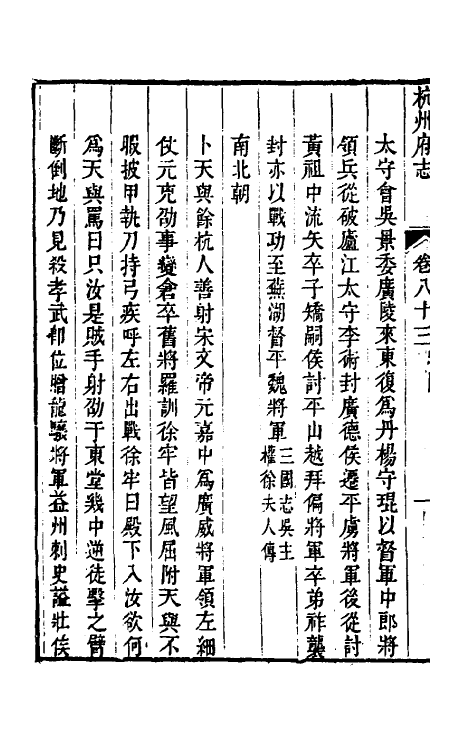 杭州府志
卷八十三
太守會吳景委廣陵來東復爲丹楊守琨以督軍中郎將
領兵從破廬江太守李術封廣德侯遷平虜將軍後從討
黃祖中流矢卒子矯嗣侯討平山越拜偏將軍卒弟祚襲
封亦以戰功至蕪湖督平魏將軍三國志吳主
權徐夫人傳
南北朝
卜天與餘杭人善射宋文帝元嘉中爲廣威將軍領左細
仗元克劭事變倉卒舊將羅訓徐牢皆望風屈附天與不
暇披甲執刀持弓疾呼左右出戰徐牢曰殿下入汝欲何
爲天與罵曰只汝是賊手射劭于東堂幾中逆徒擊之臂
斷倒地乃見殺孝武卽位贈龍驤將軍益州刺史謚壯侯